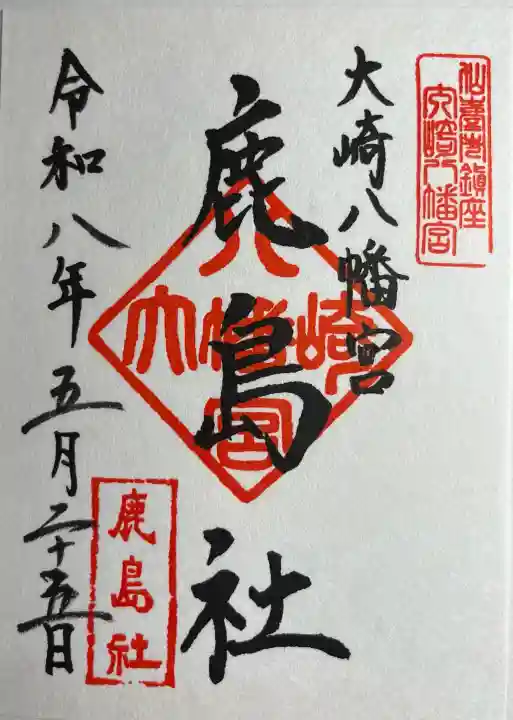 仙臺市鎮座
大崎八幡宮
大崎八幡宮
鹿島社
大崎八幡宮
鹿島社
令和八年五月二十五日